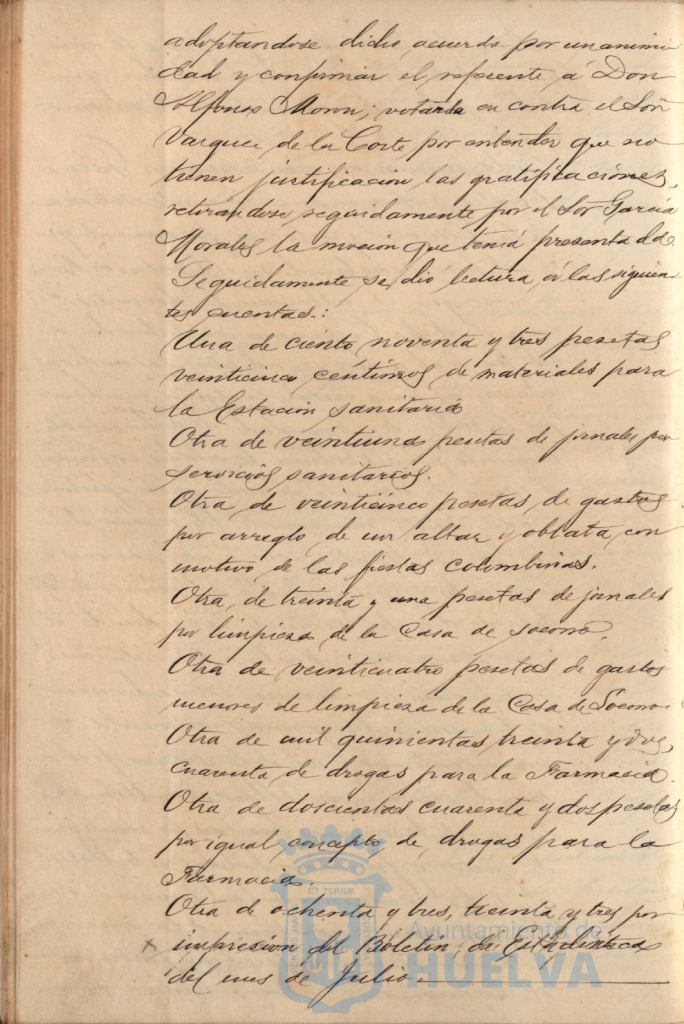 adoptandose dicho acuerdo por unanimi
dad y confirmar el referente á Don
Alfonso Moron; votando en contra el Sor
Vazquez de la Corte por entender que no
tienen justificación las gratificaciones,
retirandose seguidamente por el Sor García
Morales la moción que tenia presentada.
Seguidamente se dió lectura á las siguien
tes cuentas.:
Una de ciento noventa y tres pesetas
veinticinco céntimos de materiales para
la Estación sanitaria
Otra de veintiuna pesetas de jornales por
servicios sanitarios.
Otra de veinticinco pesetas de gastos
por arreglo de un altar y oblata con
motivo de las fiestas colombinas.
Otra de treinta y una pesetas de jornales
por limpieza de la Casa de socorro.
Otra de veinticuatro pesetas de gastos
menores de limpieza de la Casa de Socorro.
Otra de mil quinientas treinta y dos,
cuarenta de drogas para la Farmacia.
Otra de doscientas cuarenta y dos pesetas
por igual concepto de drogas para la
Farmacia.
Otra de ochenta y tres, treinta y tres por
impresion del Boletin de Estadistica
del mes de Julio
ET TERRÆ
Ayuntamiento de
HUELVA